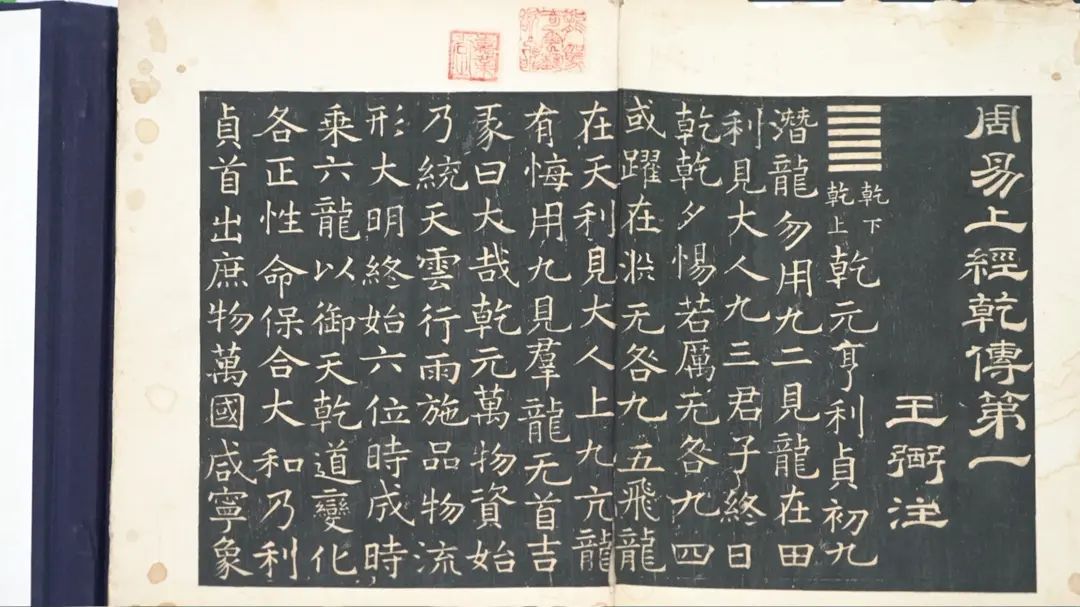 周易上經乾傳第一
王弼注
乾下
乾上
乾元亨利貞初九
潛龍勿用九二見龍在田
利見大人九三君子終日
乾乾夕惕若厲无咎九四
或躍在淵无咎九五飛龍
在天利見大人上九亢龍
有悔用九見羣龍无首吉
彖曰大哉乾元萬物資始
乃統天雲行雨施品物流
形大明終始六位時成時
乘六龍以御天乾道變化
各正性命保合大和乃利
貞首出庶物萬國咸寧象